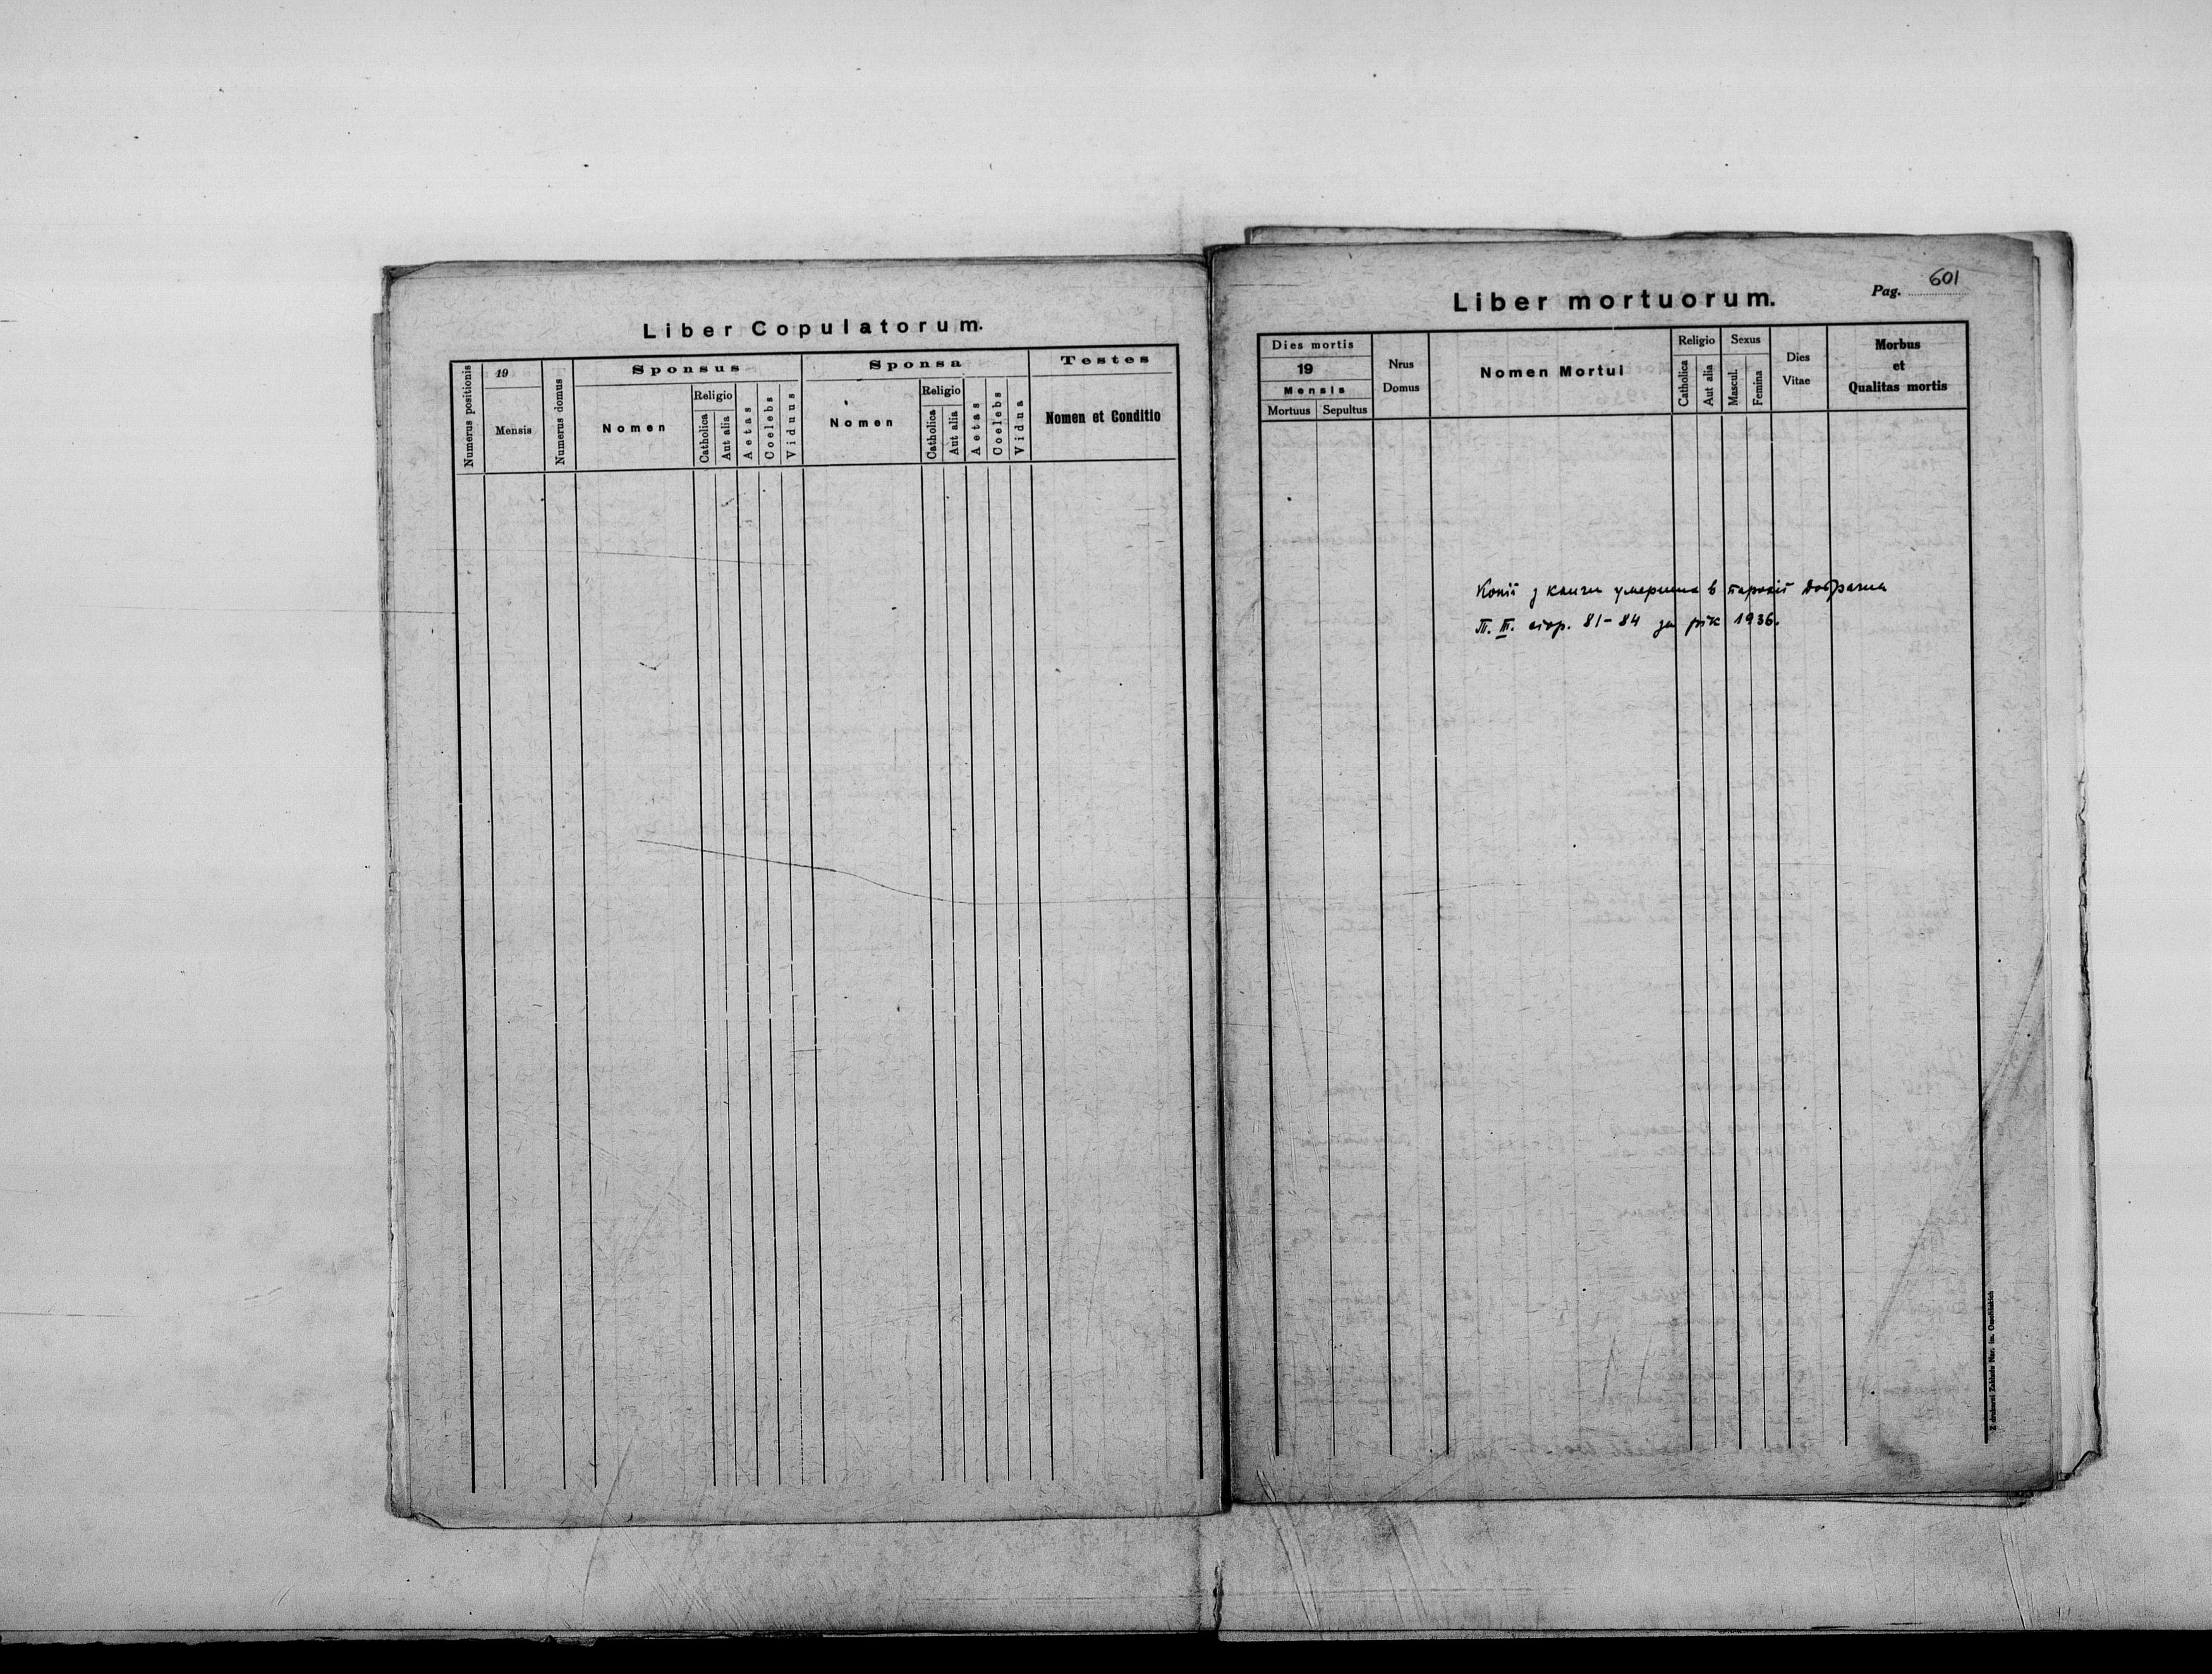 Liber Copulatorum.
Numerus positionis
19
Mensis
Numerus domus
Sponsus
Nomen
Religio
Catholica
Aut alia
Aetas
Coelebs
Viduus
Sponsa
Nomen
Religio
Catholica
Aut alia
Aetas
Coelebs
Vidua
Testes
Nomen et Conditio
Pag. 601
Liber mortuorum.
Dies mortis
19
Mensis
Mortuus
Sepultus
Nrus
Domus
Nomen Mortui
Religio
Catholica
Aut alia
Sexus
Mascul.
Femina
Dies
Vitae
Morbus
et
Qualitas mortis
Копії з книги умерших в парохії
стор. 81-84 за рік 1936.
Z drukarni Zakładu Nar. im. Ossolińskich